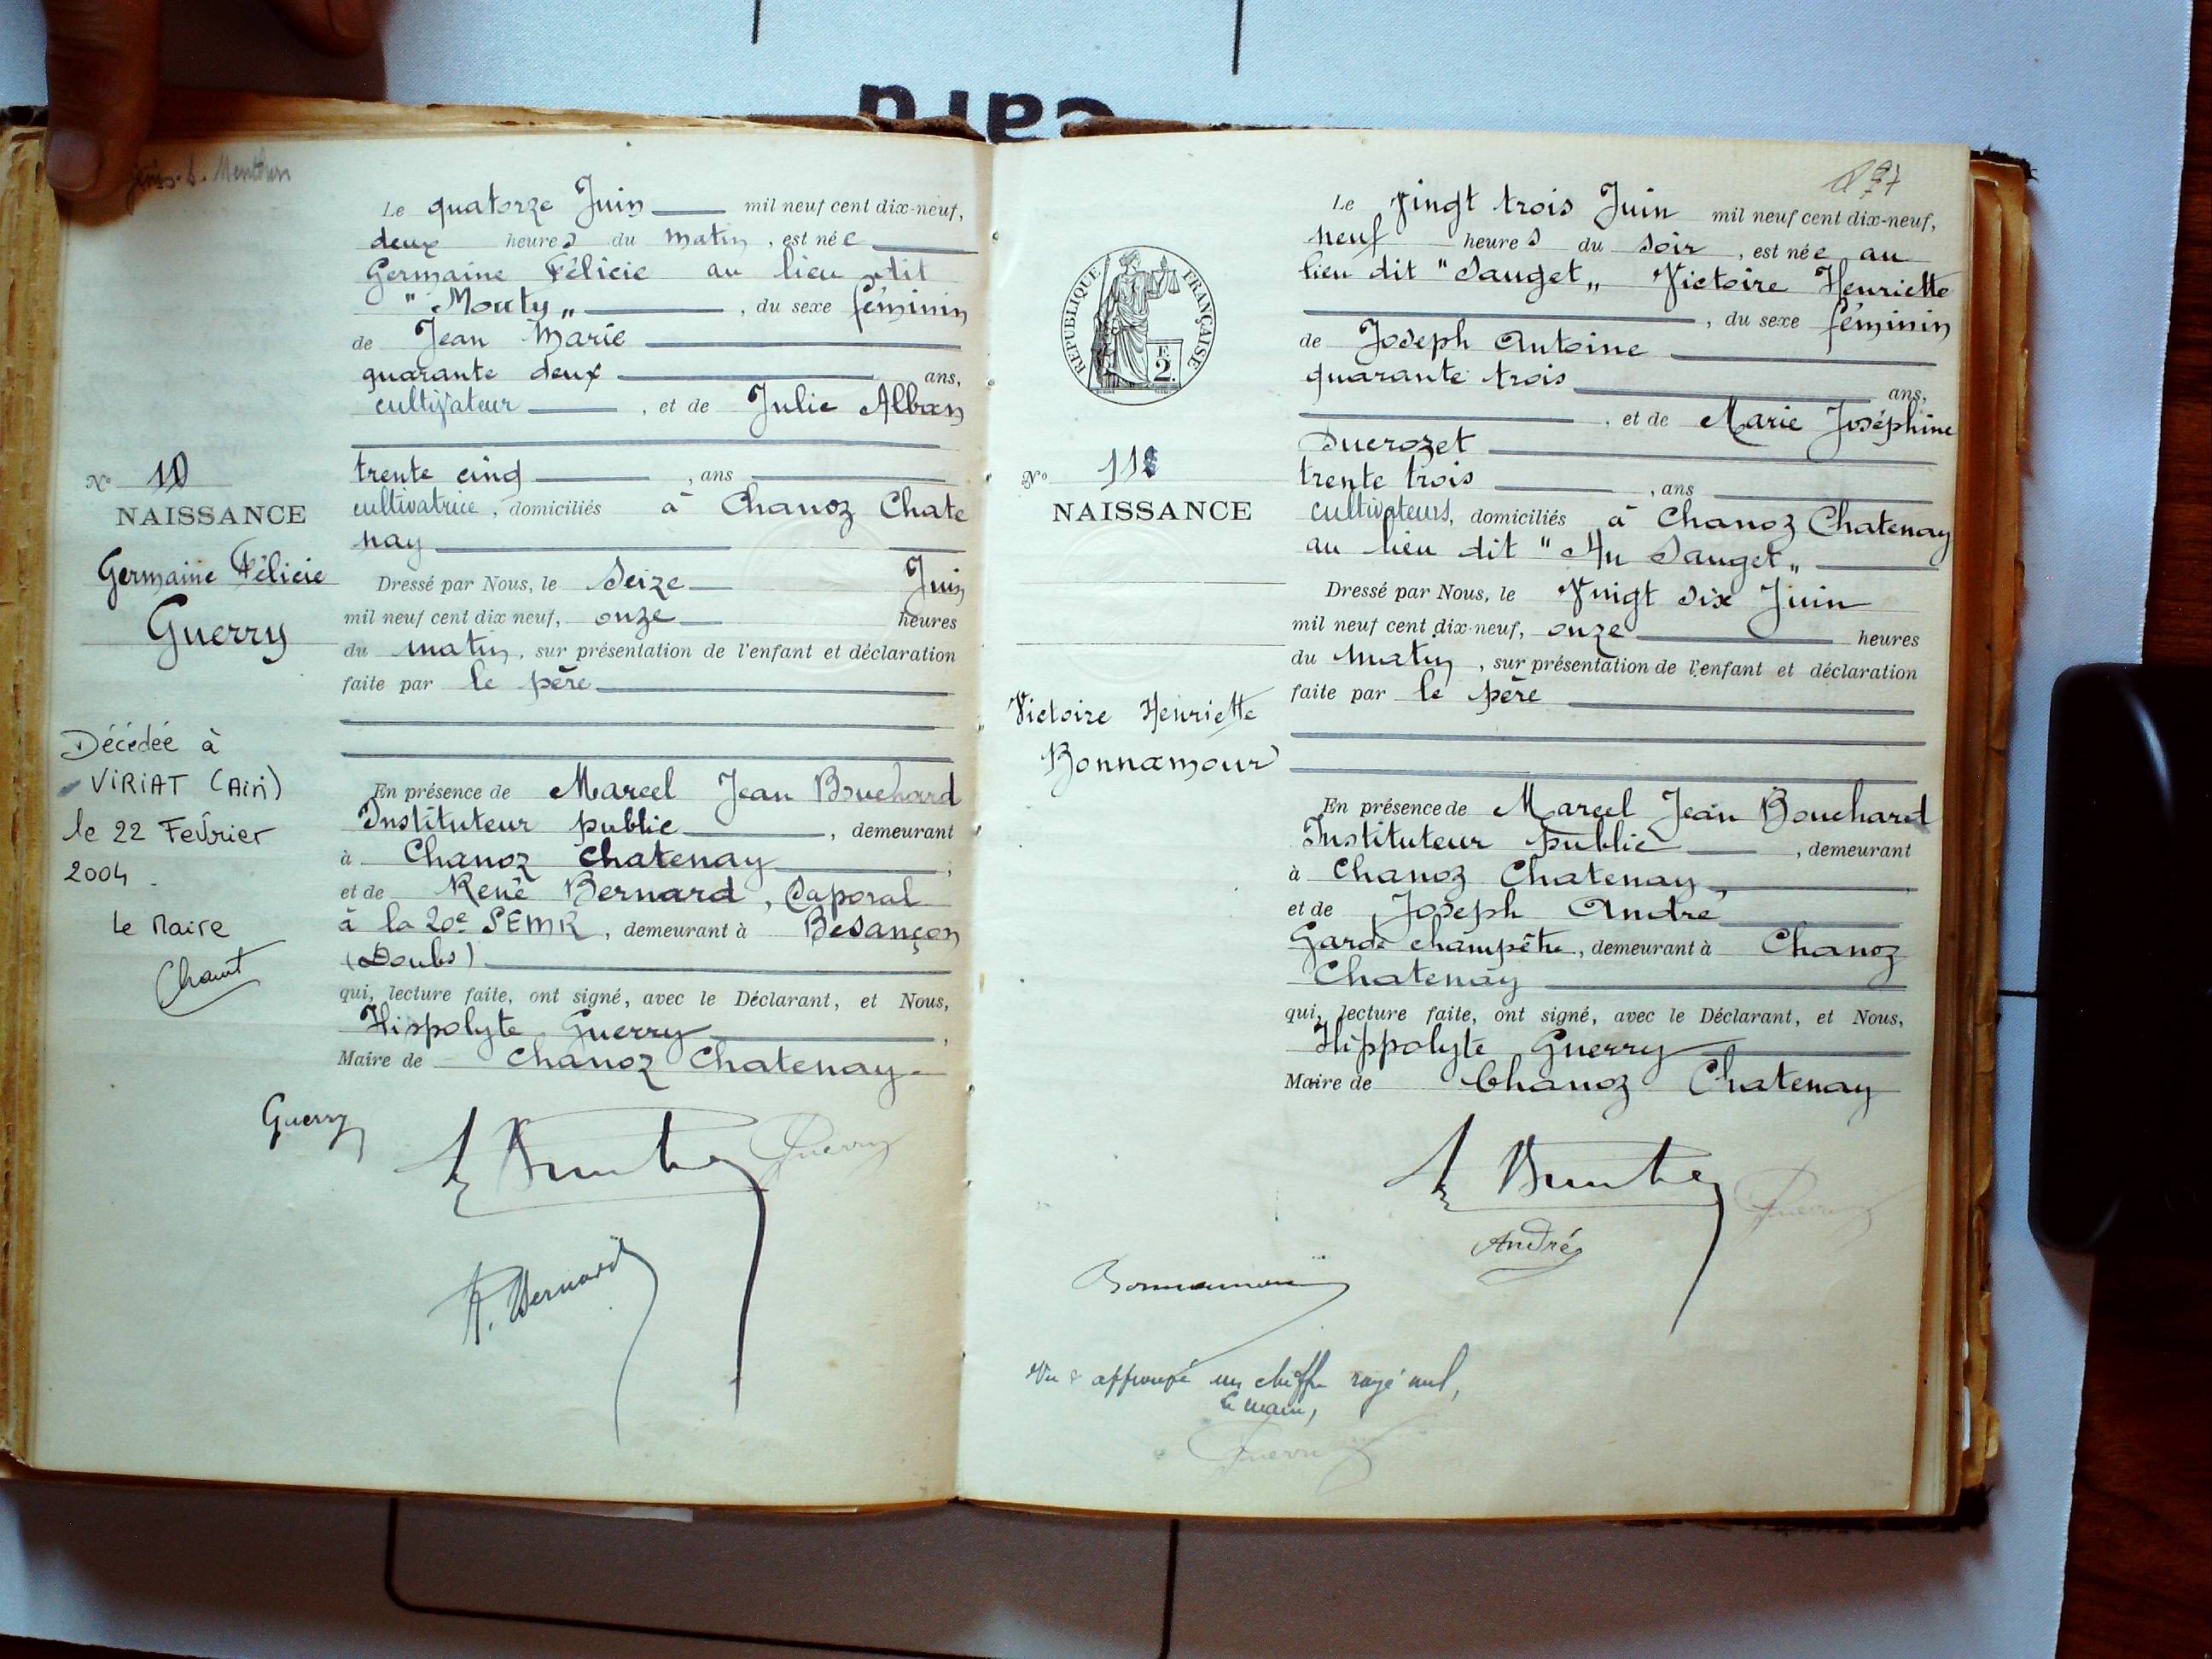 cara
Le quatorze Juin mil neuf cent dix-neuf,
deux heures du matin, est née
Germaine Félicie au lieu dit
"Mouty„, du sexe féminin
de Jean Marie
quarante deux ans,
cultivateur, et de Julie Alban
trente cinq, ans
cultivatrice, domiciliés à Chanoz Chate
nay
Dressé par Nous, le Seize Juin
mil neuf cent dix neuf, onze heures
du matin, sur présentation de l'enfant et déclaration
faite par le père
En présence de Marcel Jean Bouchard
Instituteur public, demeurant
à Chanoz Chatenay,
et de René Bernard, Caporal
à la 20e SEMR, demeurant à Besançon
(Doubs)
qui, lecture faite, ont signé, avec le Déclarant, et Nous,
Hippolyte Guerry,
Maire de Chanoz Chatenay.
Guerry
Guerry
R. Bernard
No 10
NAISSANCE
Germaine Félicie
Guerry
Décédée à
VIRIAT (Ain)
le 22 Février
2004.
Le Maire
97
Le Vingt trois Juin mil neuf cent dix-neuf,
neuf heures du soir, est née au
lieu dit "Sauget„ Victoire Henriette
, du sexe féminin
de Joseph Antoine
quarante trois ans,
, et de Marie Joséphine
Ducrozet
trente trois, ans
cultivateurs, domiciliés à Chanoz Chatenay
au lieu dit "Au Sauget„
Dressé par Nous, le Vingt six Juin
mil neuf cent dix-neuf, onze heures
du matin, sur présentation de l'enfant et déclaration
faite par le père
En présence de Marcel Jean Bouchard
Instituteur public, demeurant
à Chanoz Chatenay,
et de Joseph André
Garde champêtre, demeurant à Chanoz
Chatenay
qui, lecture faite, ont signé, avec le Déclarant, et Nous,
Hippolyte Guerry
Maire de Chanoz Chatenay
Guerry
André
Bonnamour
Vu & approuvé un chiffre rayé nul,
Le maire,
Guerry
RÉPUBLIQUE FRANÇAISE
2
No 11
NAISSANCE
Victoire Henriette
Bonnamour